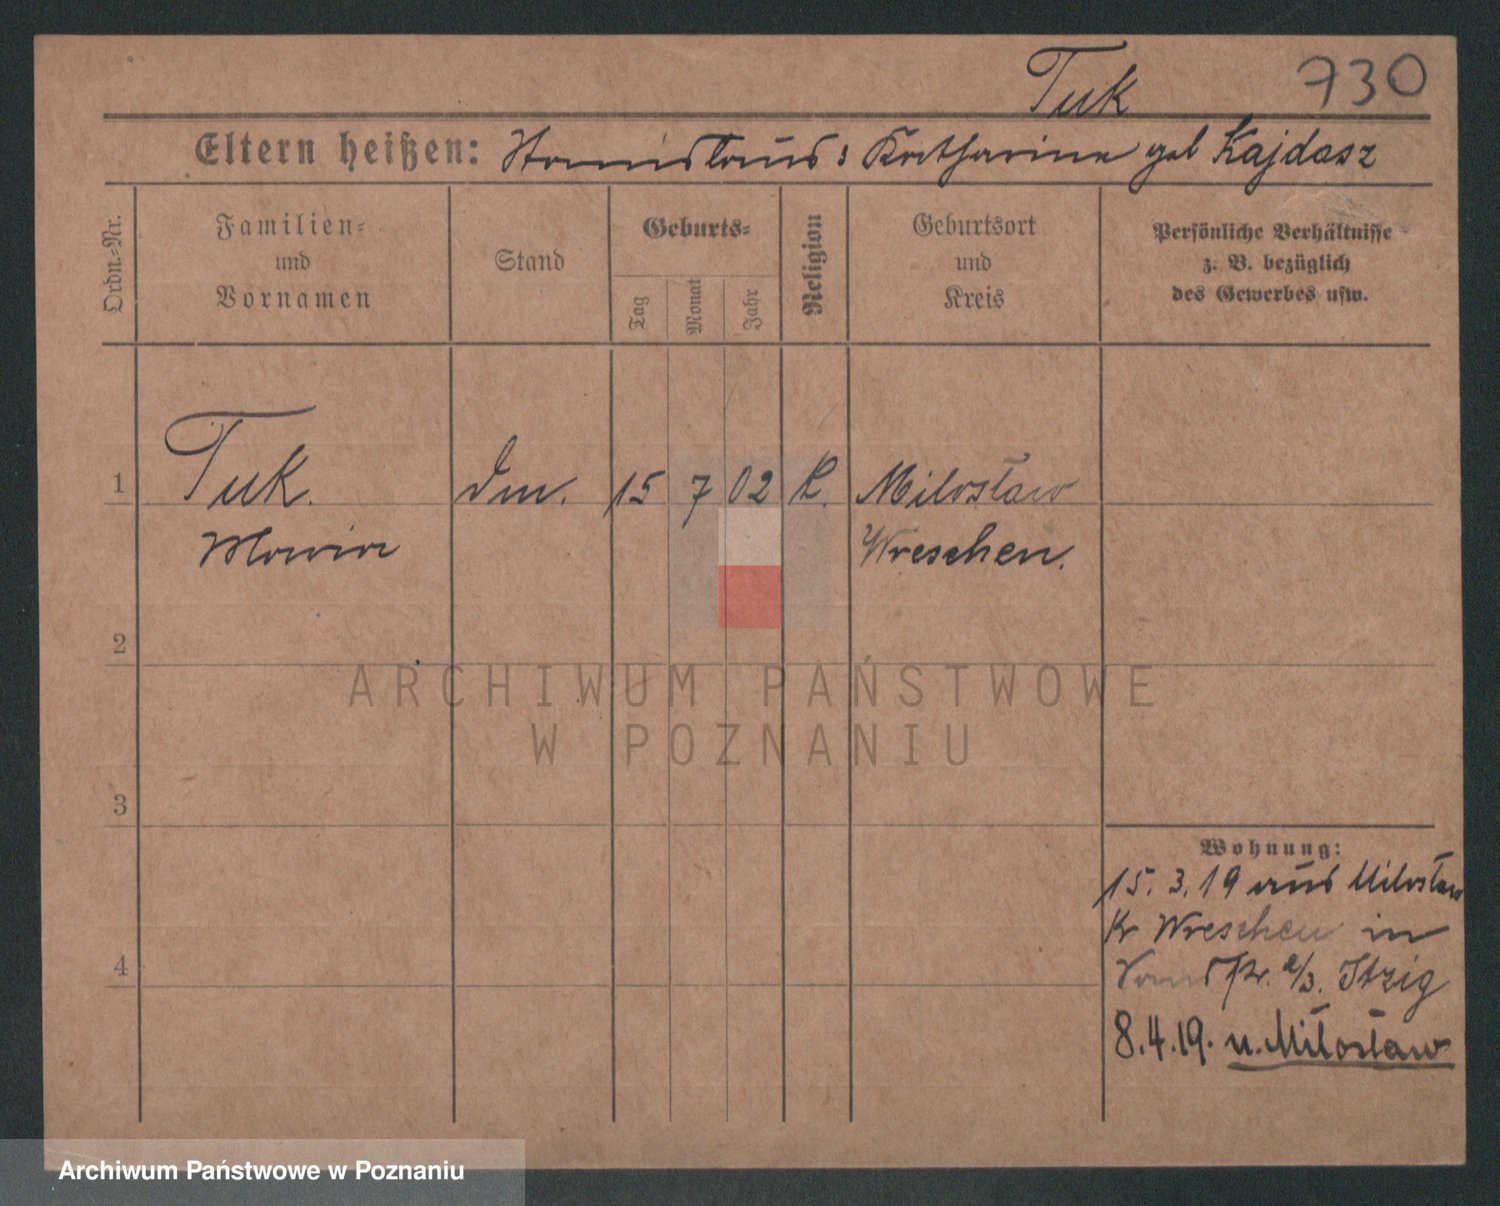 Tuk 730
Eltern heißen: Stanislaus : Katharina geb Kajdasz
Ordn.-Nr.
Familien-
und
Vornamen
Stand
Geburts-
Tag
Monat
Jahr
Religion
Geburtsort
und
Kreis
Persönliche Verhältnisse
z. B. bezüglich
des Gewerbes usw.
1 Tuk. 15 7 02 K. Miłosław
Maria Wreschen.
2
3
4
Wohnung:
15.3.19 aus Miłosław
Kr Wreschen in
Itzig
8.4.19. n. Miłosław
ARCHIWUM PAŃSTWOWE
W POZNANIU
Archiwum Państwowe w Poznaniu